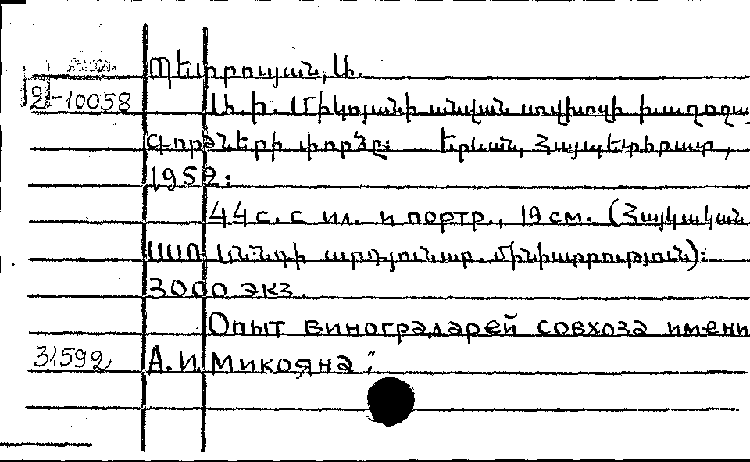 Պետրոսյան, Ա.
2-10058
Ա. Ի. Միկոյանի անվան սովխոզի խաղողա
գործների փորձը: Երևան, Հայպետհրատ,
1952:
44 с. с ил. и портр., 19 см. (Հայկական
ՍՍՌ սննդի արդյունաբ. մինիստրություն):
3000 экз.
Опыт виноградарей совхоза имени
31592
А. И. Микояна: